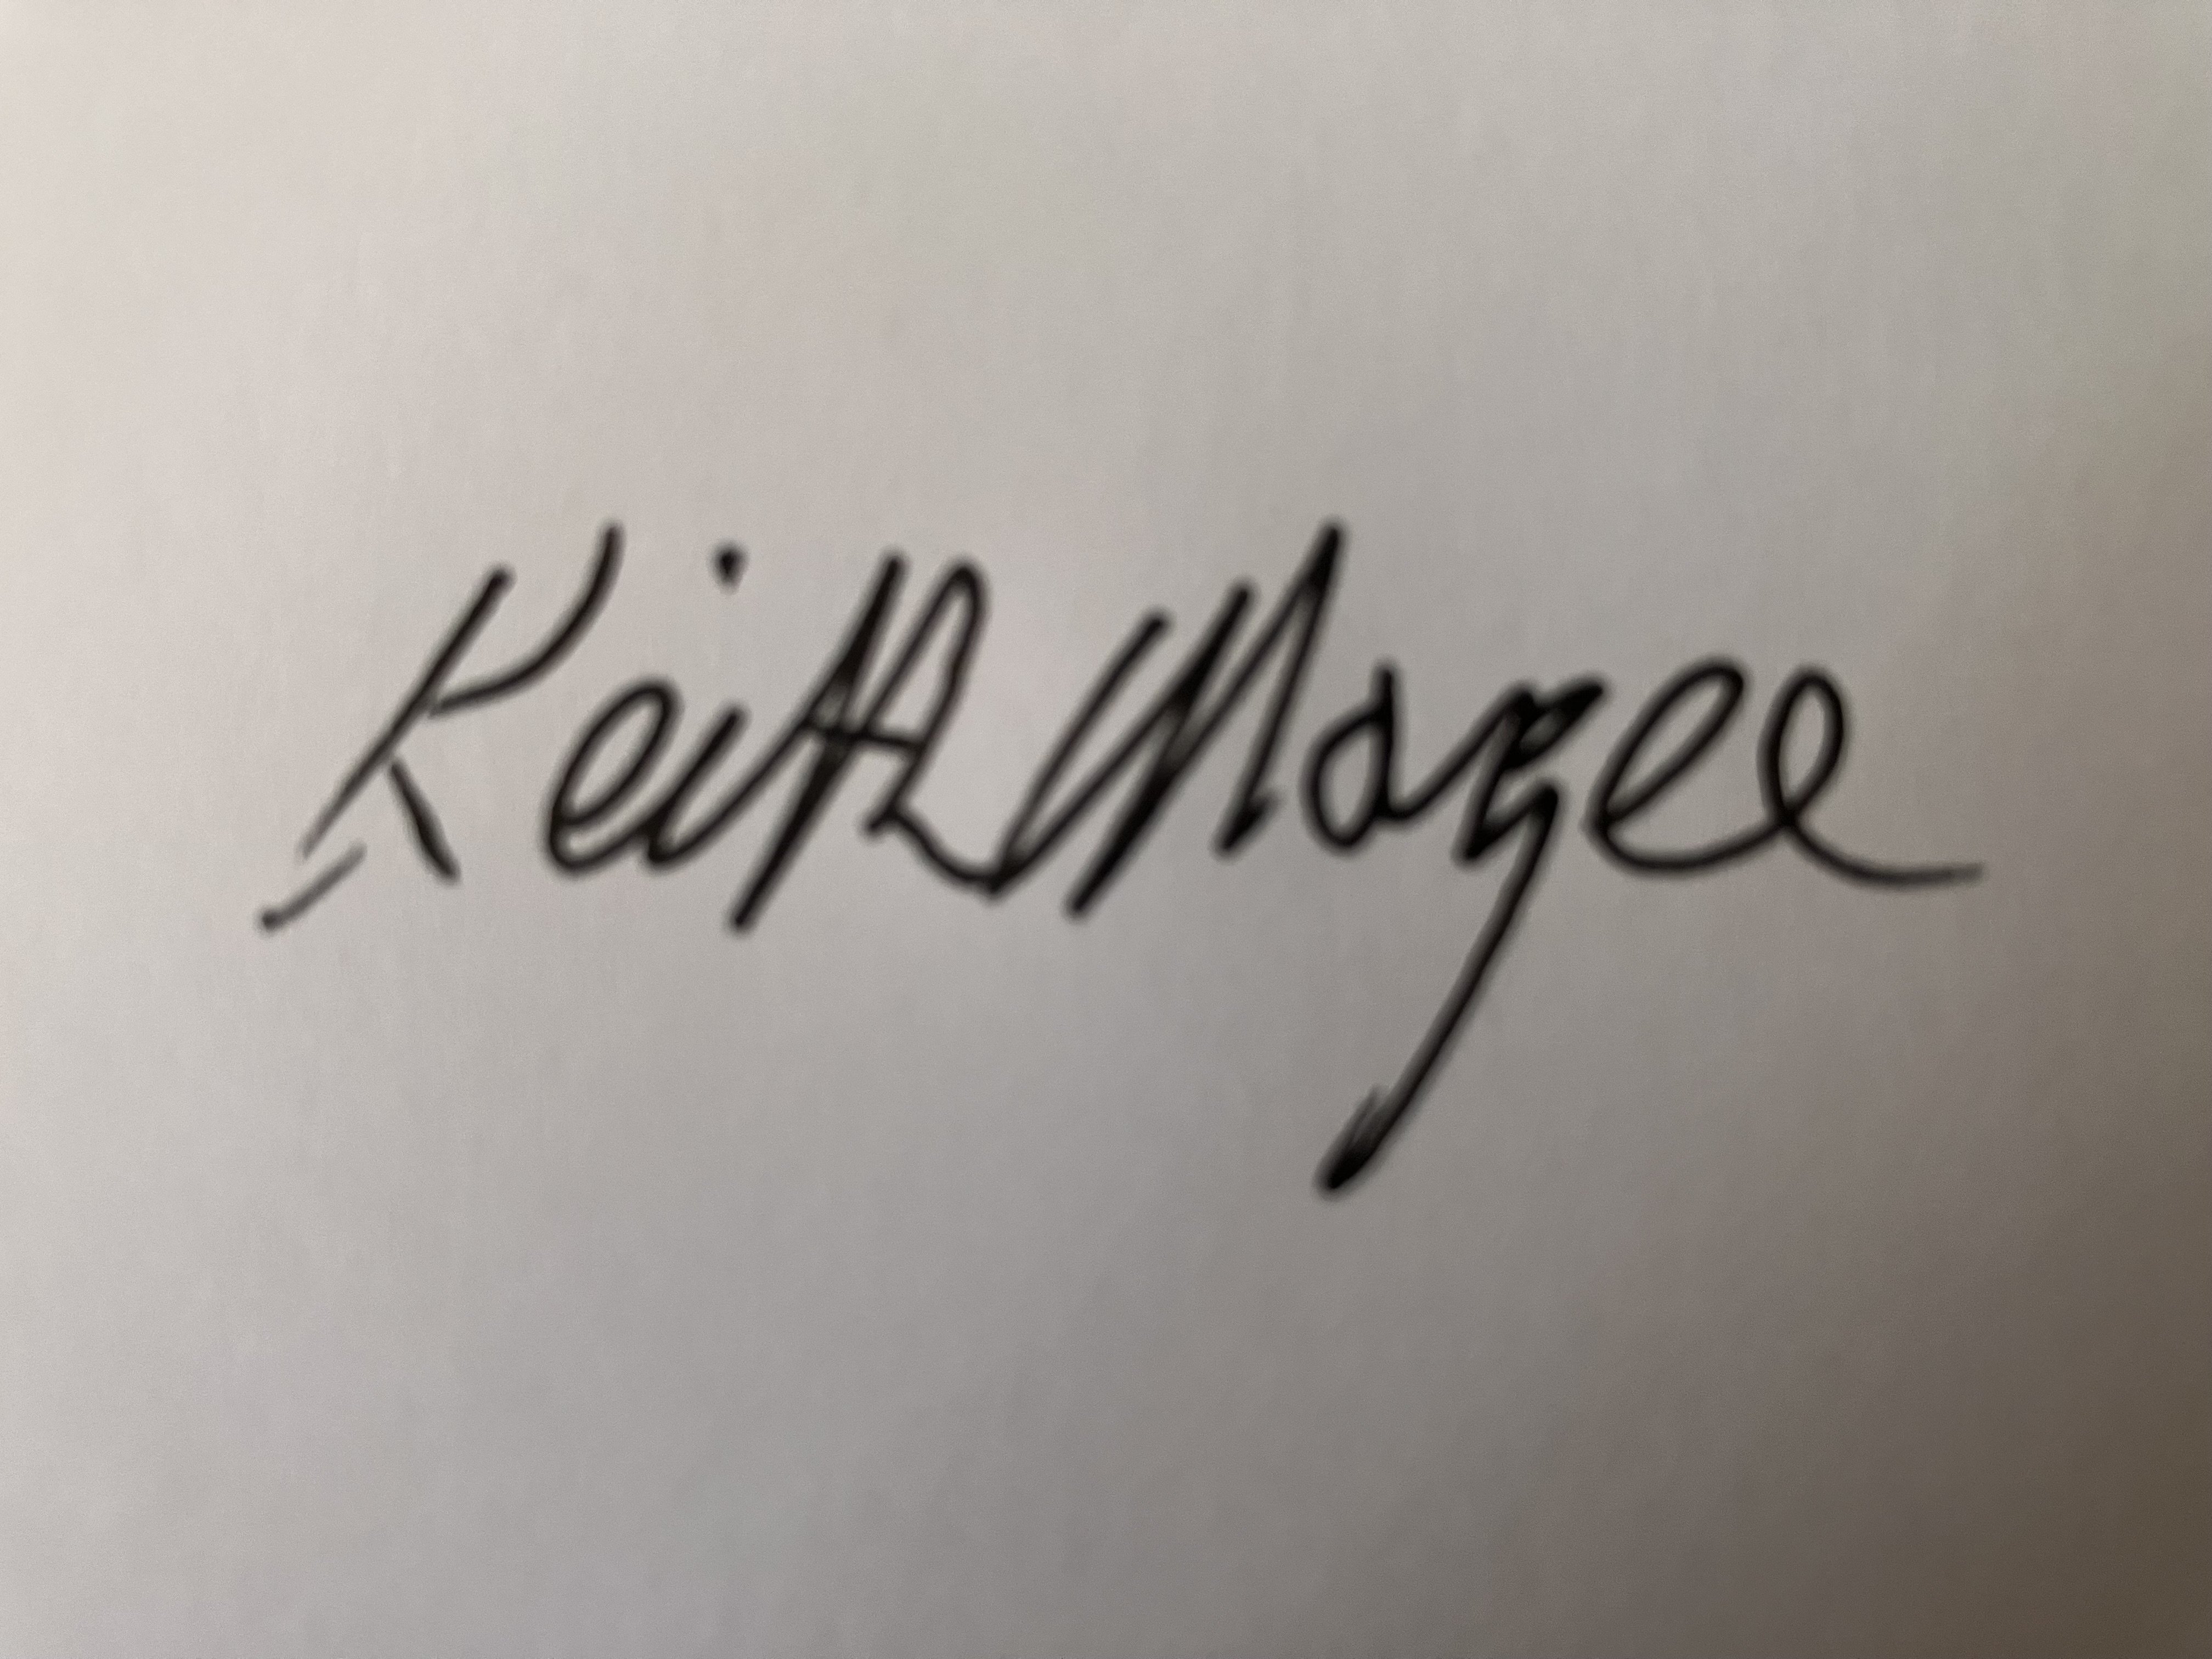 Keith Magee